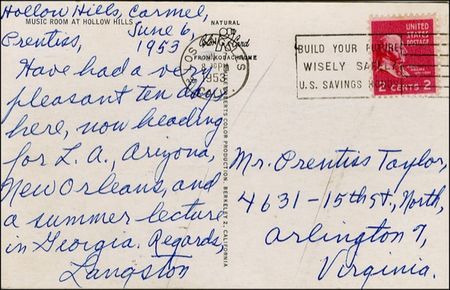 Hollow Hills, Carmel,
MUSIC ROOM AT HOLLOW HILLS
June 6,
1953
Prentiss,
Have had a very
pleasant ten days
here, now heading
for L. A., Arizona,
New Orleans, and
a summer lecture
in Georgia. Regards,
Langston
NATURAL
Color Card
FROM KODACHROME
1953
COLOR PRODUCTION, BERKELEY 2, CALIFORNIA
BUILD YOUR FUTURE
WISELY
U.S. SAVINGS
UNITED STATES
POSTAGE
2 CENTS 2
Mr. Prentiss Taylor,
4631-15th St., North,
Arlington 7,
Virginia.